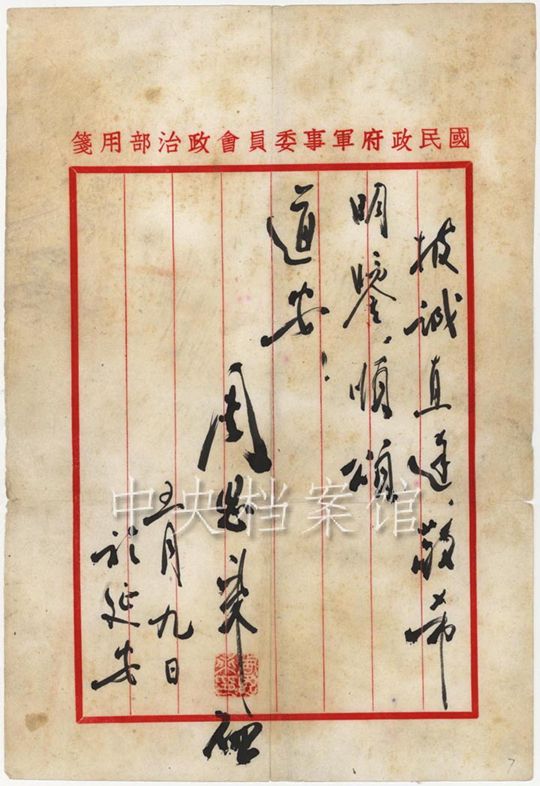 國民政府軍事委員會政治部用箋
披誠直達，敬希
明鑒。順頌
道安！
周恩來啟
五月九日
於延安
中央档案馆
7